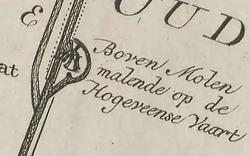 E
UUD
at
Boven Molen
malende op de
Hogeveense Vaart